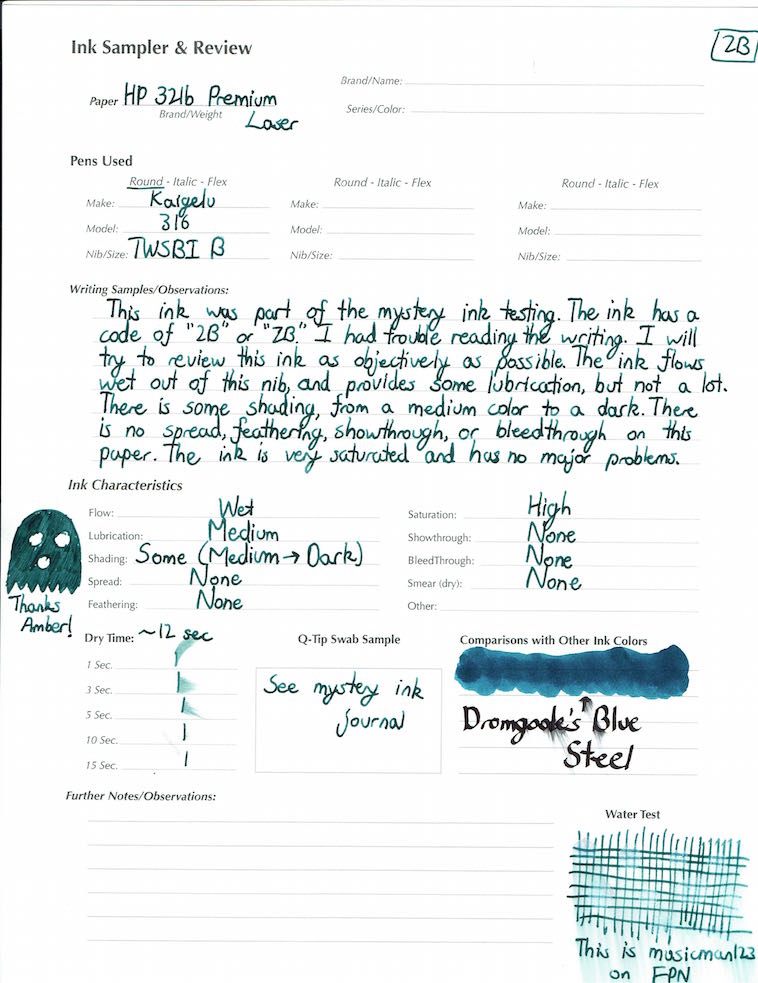 Ink Sampler & Review
2B
Paper HP 32lb Premium
Brand/Weight
Laser
Brand/Name:
Series/Color:
Pens Used
Round - Italic - Flex
Make: Kaigelu
Model: 316
Nib/Size: TWSBI B
Round - Italic - Flex
Make:
Model:
Nib/Size:
Round - Italic - Flex
Make:
Model:
Nib/Size:
Writing Samples/Observations:
This ink was part of the mystery ink testing. The ink has a
code of "2B" or "ZB." I had trouble reading the writing. I will
try to review this ink as objectively as possible. The ink flows
wet out of this nib, and provides some lubrication, but not a lot.
There is some shading, from a medium color to a dark. There
is no spread, feathering, showthrough, or bleedthrough on this
paper. The ink is very saturated and has no major problems.
Ink Characteristics
Flow: Wet
Lubrication: Medium
Shading: Some (Medium → Dark)
Spread: None
Feathering: None
Saturation: High
Showthrough: None
BleedThrough: None
Smear (dry): None
Other:
Thanks
Amber!
Dry Time: ~12 sec
1 Sec.
3 Sec.
5 Sec.
10 Sec.
15 Sec.
Q-Tip Swab Sample
See mystery ink
journal
Comparisons with Other Ink Colors
Dromgoole's Blue
Steel
Further Notes/Observations:
Water Test
This is musicman123
on FPN